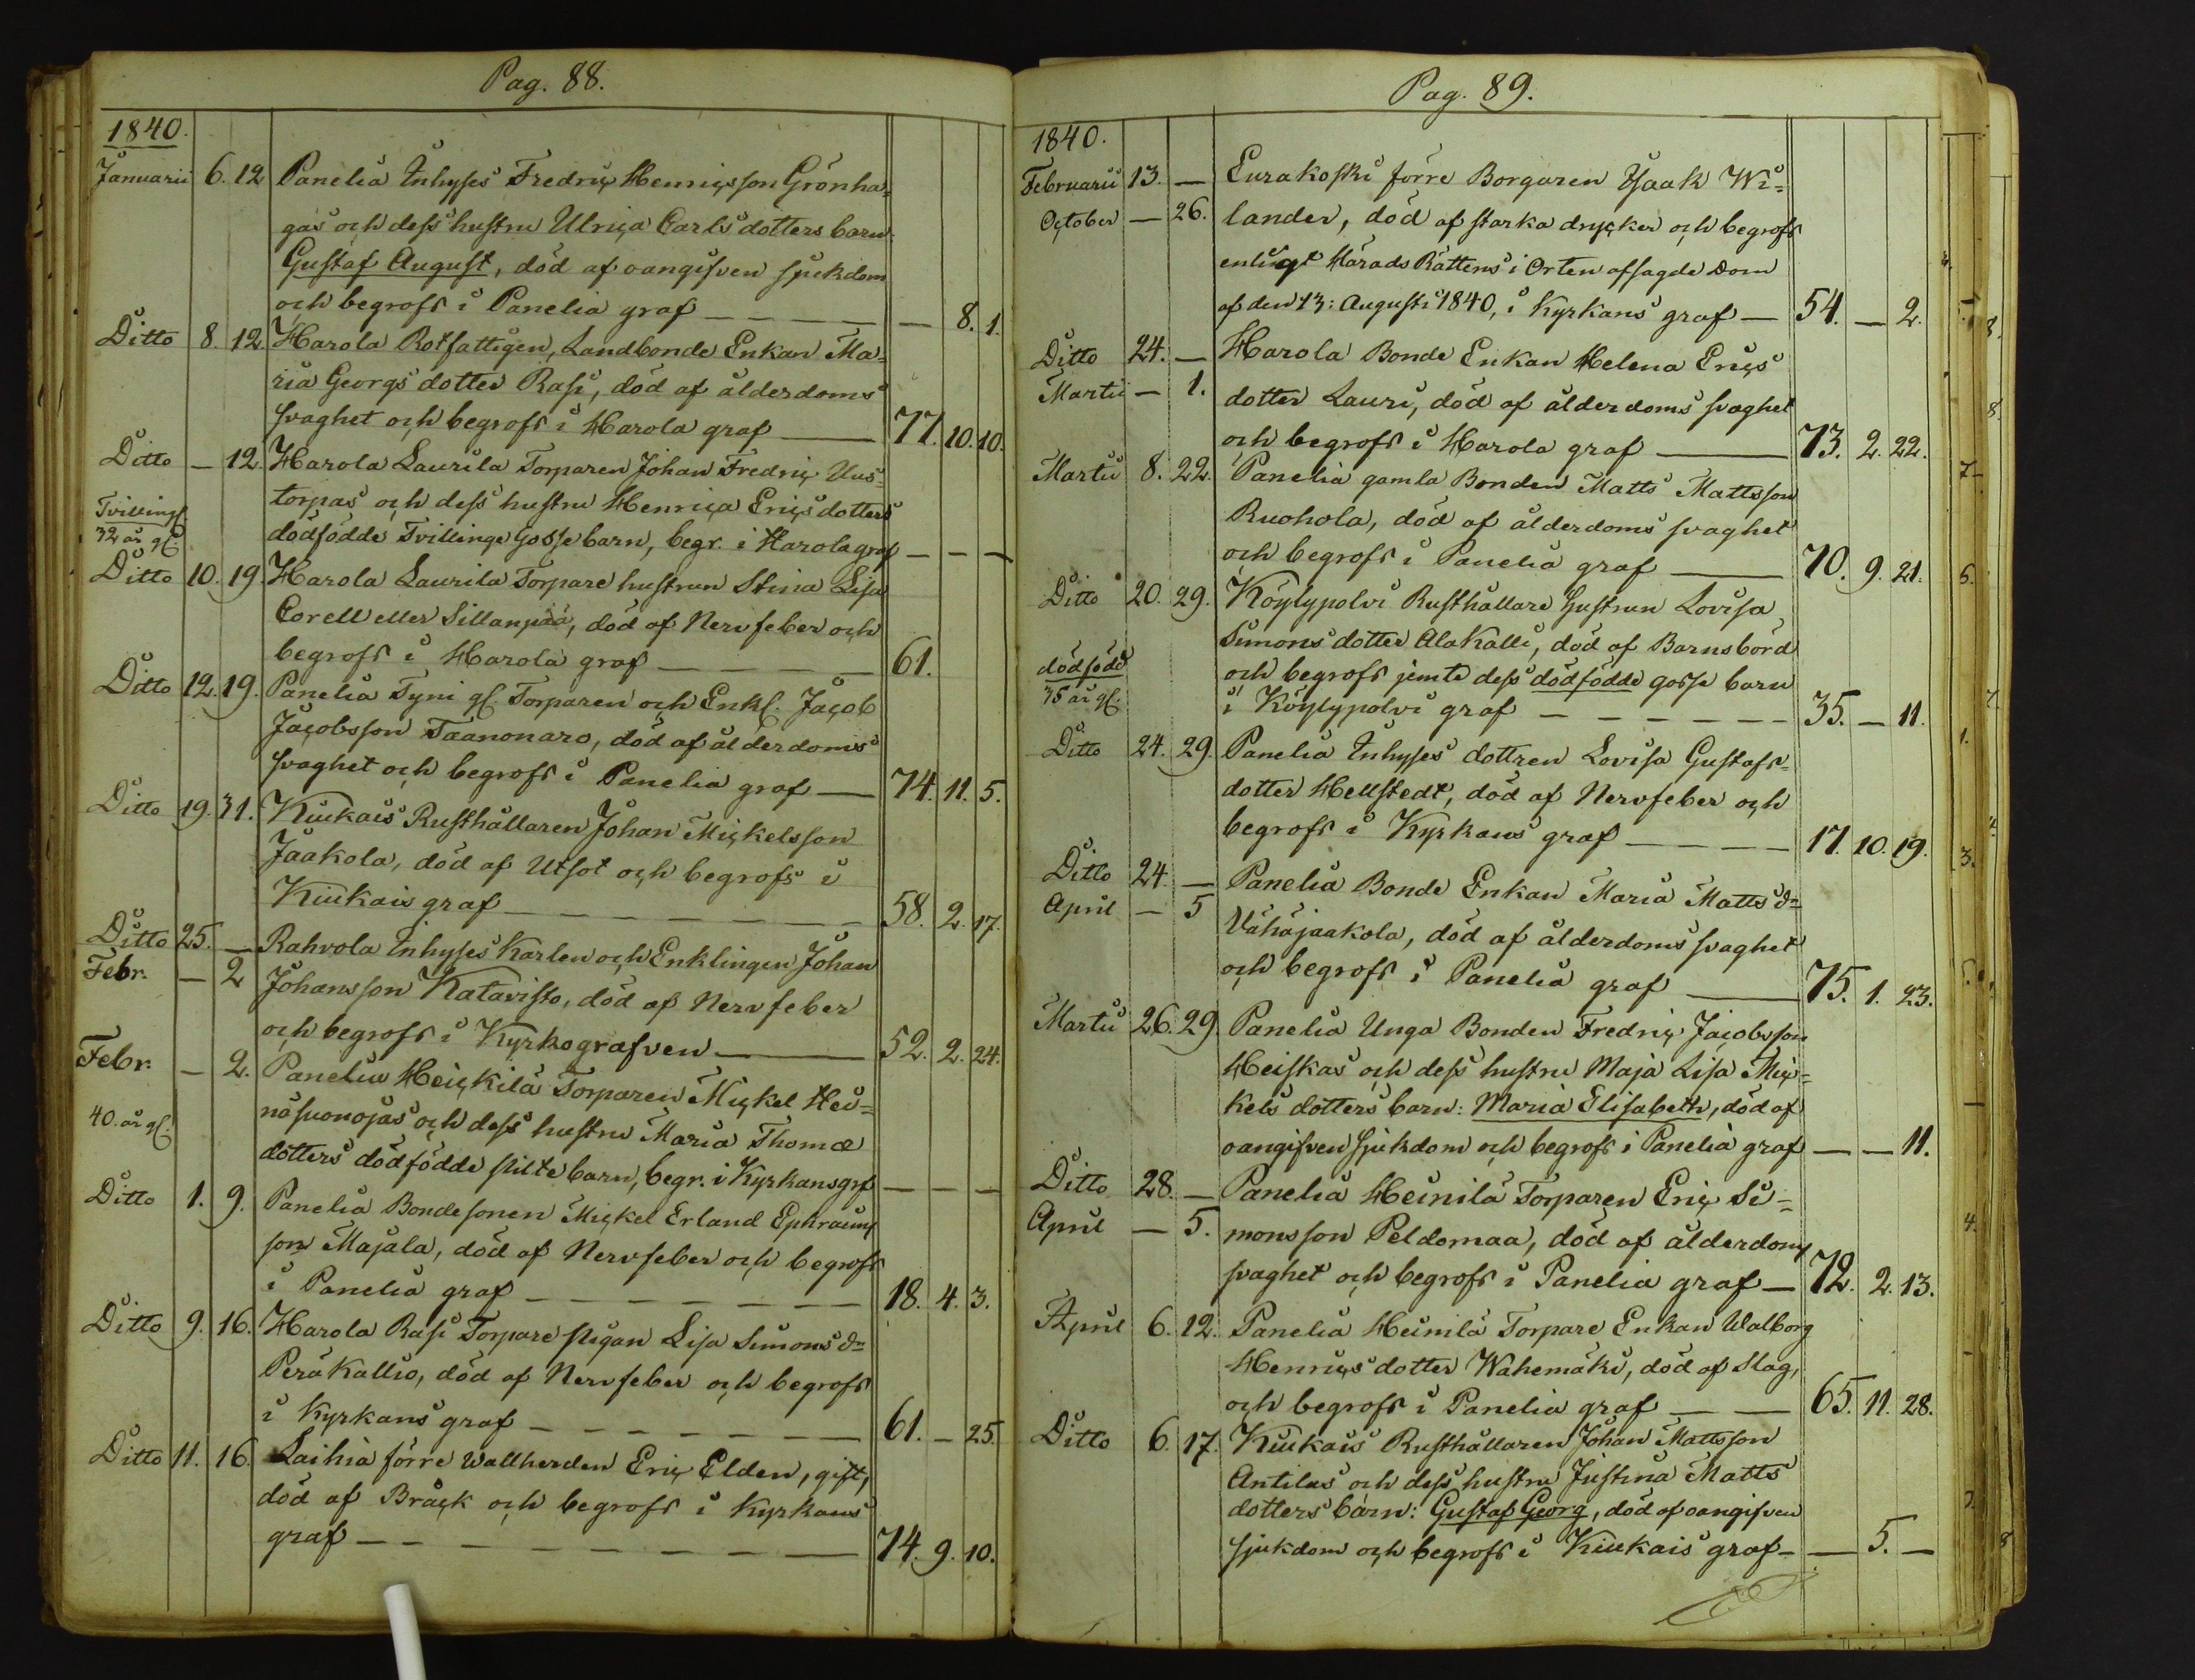 Pag. 88.
1840.
Januarii 6. 12 Panelia Inhyses Fredric Henricsson Grönha=
gas och dess hustru Ulrica Carls dotters barn
Gustaf August, död af oangifven sjukdom
och begrofs i Panelia graf — 8. 1.
Ditto 8. 12. Harola Rotfattigen, Landbonde Enkan Ma=
ria Georgs dotter Rasi, död af ålderdoms
svaghet och begrofs i Harola graf — 77. 10. 10.
Ditto — 12. Harola Laurila Torparen Johan Fredric Uus=
torpas och dess hustru Henrica Erics dotters
Tvillingf.
32 år gl. dödfödde Tvillinge Gossebarn, begr. i Harola graf — — —
Ditto 10. 19. Harola Laurila Torpare hustrun Stina Lisa
Corell eller Sillanpää, död af Nervfeber och
begrofs i Harola graf — 61.
Ditto 12. 19. Panelia Tyni gl. Torparen och Enkl. Jacob
Jacobsson Taanonaro, död af ålderdoms
svaghet och begrofs i Panelia graf — 74. 11. 5.
Ditto 19. 31. Kiukais Rusthållaren Johan Mickelsson
Jaakola, död af Utsot och begrofs i
Kiukais graf — 58. 2. 17.
Ditto 25. — Rahvola Inhyses Karlen och Enklingen Johan
Febr. — 2 Johansson Katavisto, död af Nervfeber
och begrofs i Kyrkografven — 52. 2. 24.
Febr. — 2. Panelia Heickilä Torparen Mickel Hei=
näsuonojas och dess hustru Maria Thomæ
40. år gl. dotters dödfödde piltebarn, begr. i Kyrkans grf — — —
Ditto 1. 9. Panelia Bondesonen Mickel Erland Ephraims
son Majala, död af Nervfeber och begrofs
i Panelia graf — 18. 4. 3.
Ditto 9. 16. Harola Rasi Torpare pigan Lisa Simons dr
Peräkallio, död af Nervfeber och begrofs
i Kyrkans graf — 61. — 25.
Ditto 11. 16. Laihia förre Wallherden Eric Elden, gift,
död af Bråck och begrofs i Kyrkans
graf — 74. 9. 10.
Pag. 89.
1840.
Februarii 13. — Eurakoski förre Borgaren Isaak Wi=
October — 26. lander, död af starka drycker och begrofs
enligt Härads Rättens i Orten afsagde Dom
af den 13: Augusti 1840, i Kyrkans graf — 54. — 2.
Ditto 24. — Harola Bonde Enkan Helena Erics
Martii — 1. dotter Lauri, död af ålderdoms svaghet
och begrofs i Harola graf — 73. 2. 22.
Martii 8. 22. Panelia gamla Bonden Matts Mattsson
Ruohola, död af ålderdoms svaghet
och begrofs i Panelia graf — 70. 9. 21.
Ditto 20. 29. Köylypolvi Rusthållare hustrun Lovisa
Simons dotter Alakalli, död af Barnsbörd
dödfödd och begrofs jemte dess dödfödde gosse barn
35 år gl. i Köylypolvi graf — 35. — 11.
Ditto 24. 29. Panelia Inhyses dottren Lovisa Gustafs=
dotter Hellstedt, död af Nervfeber och
begrofs i Kyrkans graf — 17. 10. 19.
Ditto 24 — Panelia Bonde Enkan Maria Matts dr
April — 5 Vähäjaakola, död af ålderdoms svaghet
och begrofs i Panelia graf — 75. 1. 23.
Martii 26. 29 Panelia Unga Bonden Fredric Jacobsson
Heiskas och dess hustru Maja Lisa Mic=
kels dotters barn: Maria Elisabeth, död af
oangifven sjukdom och begrofs i Panelia graf — — 11.
Ditto 28. — Panelia Heinilä Torparen Eric Si=
April — 5. monsson Peldomaa, död af ålderdoms
svaghet och begrofs i Panelia graf — 72. 2. 13.
April 6. 12. Panelia Heinilä Torpare Enkan Walborg
Henrics dotter Wahemäki, död af Slag,
och begrofs i Panelia graf — 65. 11. 28.
Ditto 6. 17. Kiukais Rusthållaren Johan Mattsson
Antilas och dess hustru Justina Matts
dotters barn: Gustaf Georg, död af oangifven
sjukdom och begrofs i Kiukais graf — — 5. —